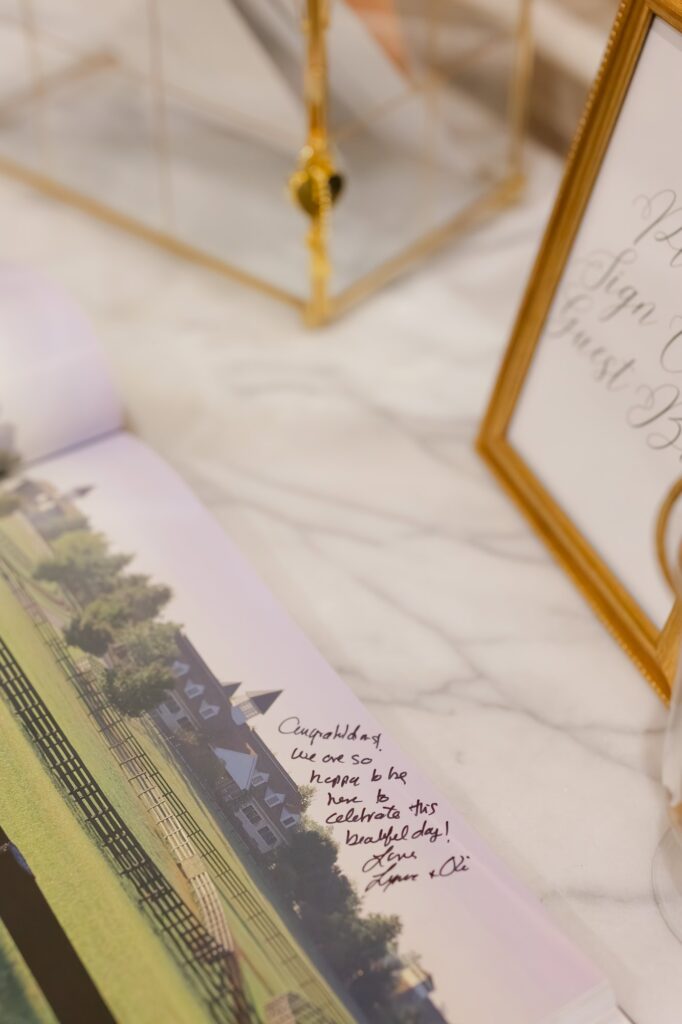 Sign
Guest
Congratulations!
We are so
happy to be
here to
celebrate this
beautiful day!
Love
Lynne + Oli